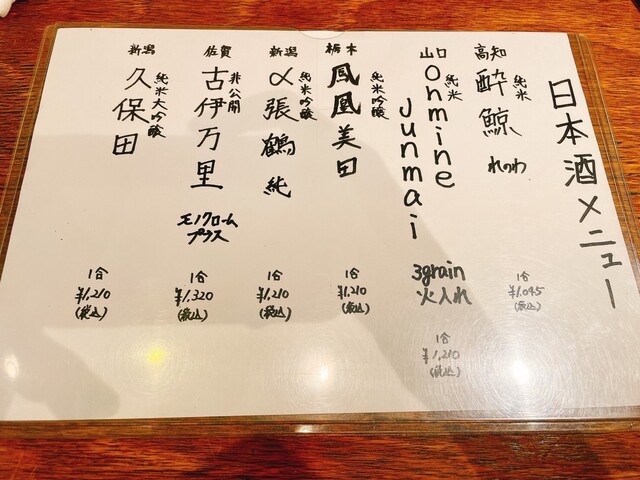 日本酒メニュー
高知
純米
酔鯨
れのわ
1合
¥1,045
(税込)
山口
純米
Onmine
Junmai
3grain
火入れ
1合
¥1,210
(税込)
栃木
純米吟醸
鳳凰美田
1合
¥1,210
(税込)
新潟
純米吟醸
〆張鶴 純
1合
¥1,210
(税込)
佐賀
非公開
古伊万里
モノクローム
プラス
1合
¥1,320
(税込)
新潟
純米大吟醸
久保田
1合
¥1,210
(税込)